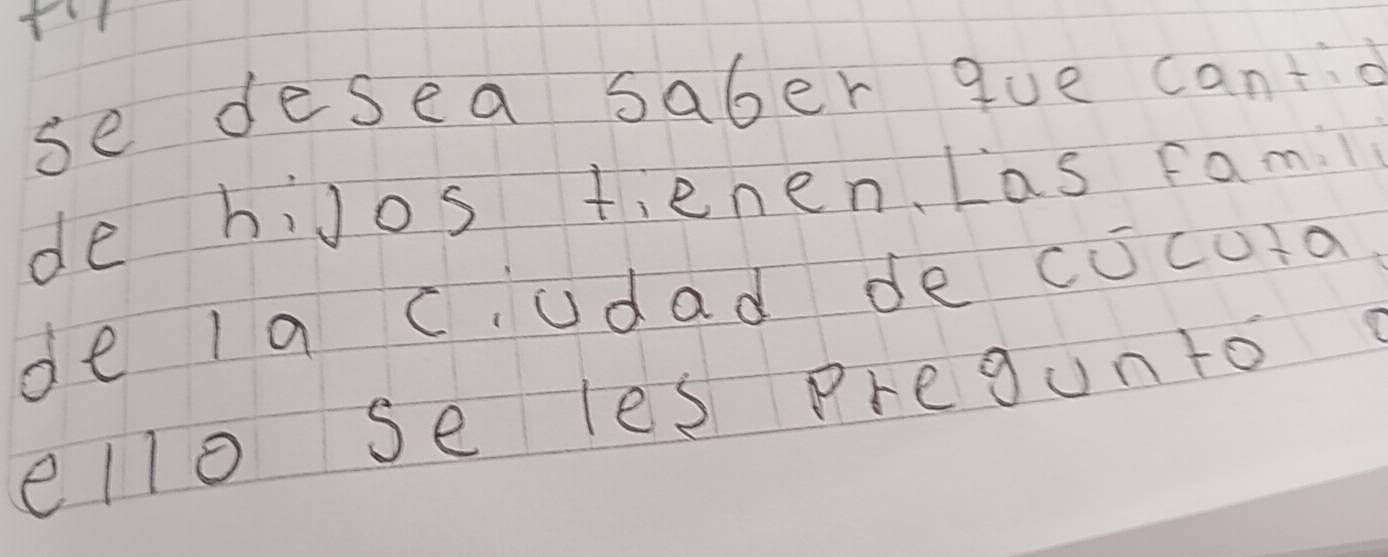 se desea saber que cantid
de hijos tienen. Las famili
de la ciudad de cúcuta.
ello se les preguntó